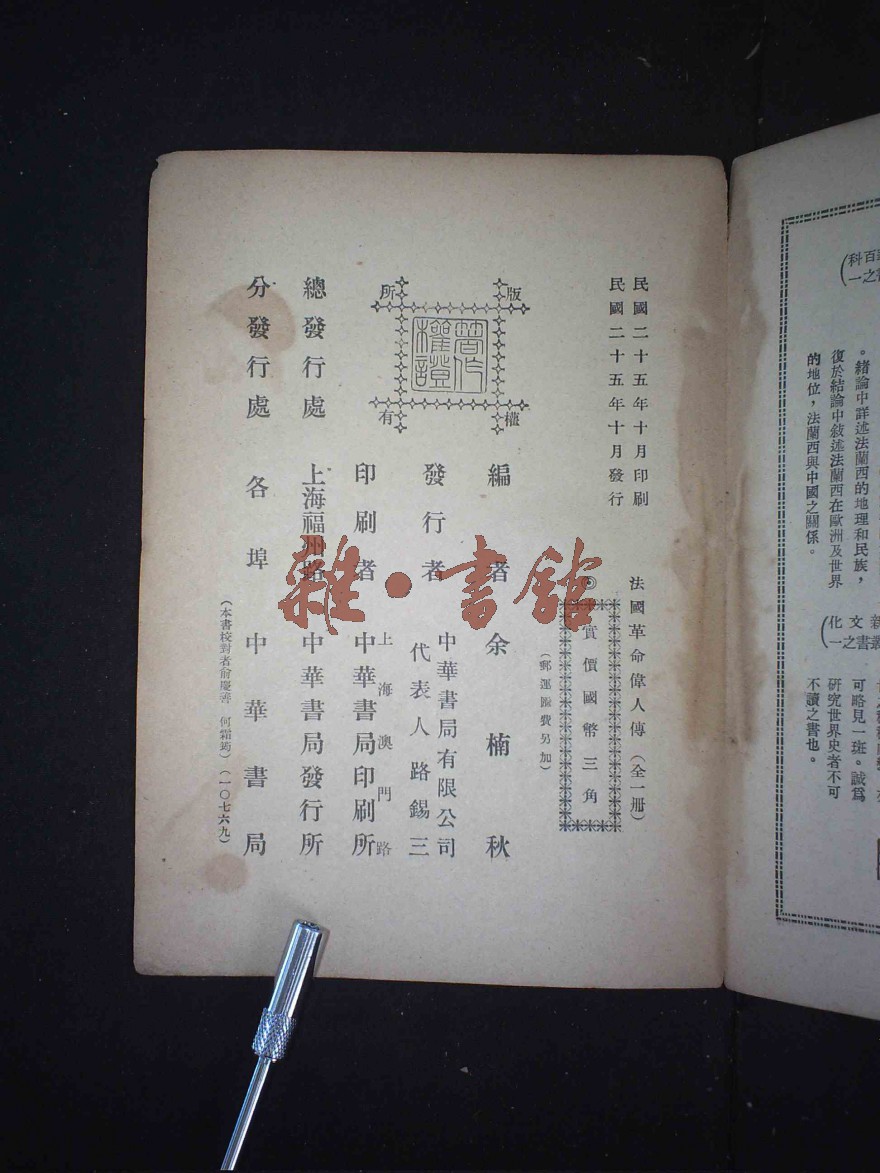 民國二十五年十月印刷
民國二十五年十月發行
法國革命偉人傳（全一冊）
◎實價國幣三角
（郵運匯費另加）
版權所有
著作權證
編者 余楠秋
發行者 中華書局有限公司
代表人路錫三
印刷者 上海澳門路
中華書局印刷所
總發行處 上海福州路 中華書局發行所
分發行處 各埠 中華書局
（本書校對者俞慶善 何霜筠）（一〇七六九）
雜·書館
科
之一
。緒論中詳述法蘭西的地理和民族，
復於結論中敍述法蘭西在歐洲及世界
的地位，法蘭西與中國之關係。
新文化
叢書之一
可略見一斑。誠爲
研究世界史者不可
不讀之書也。